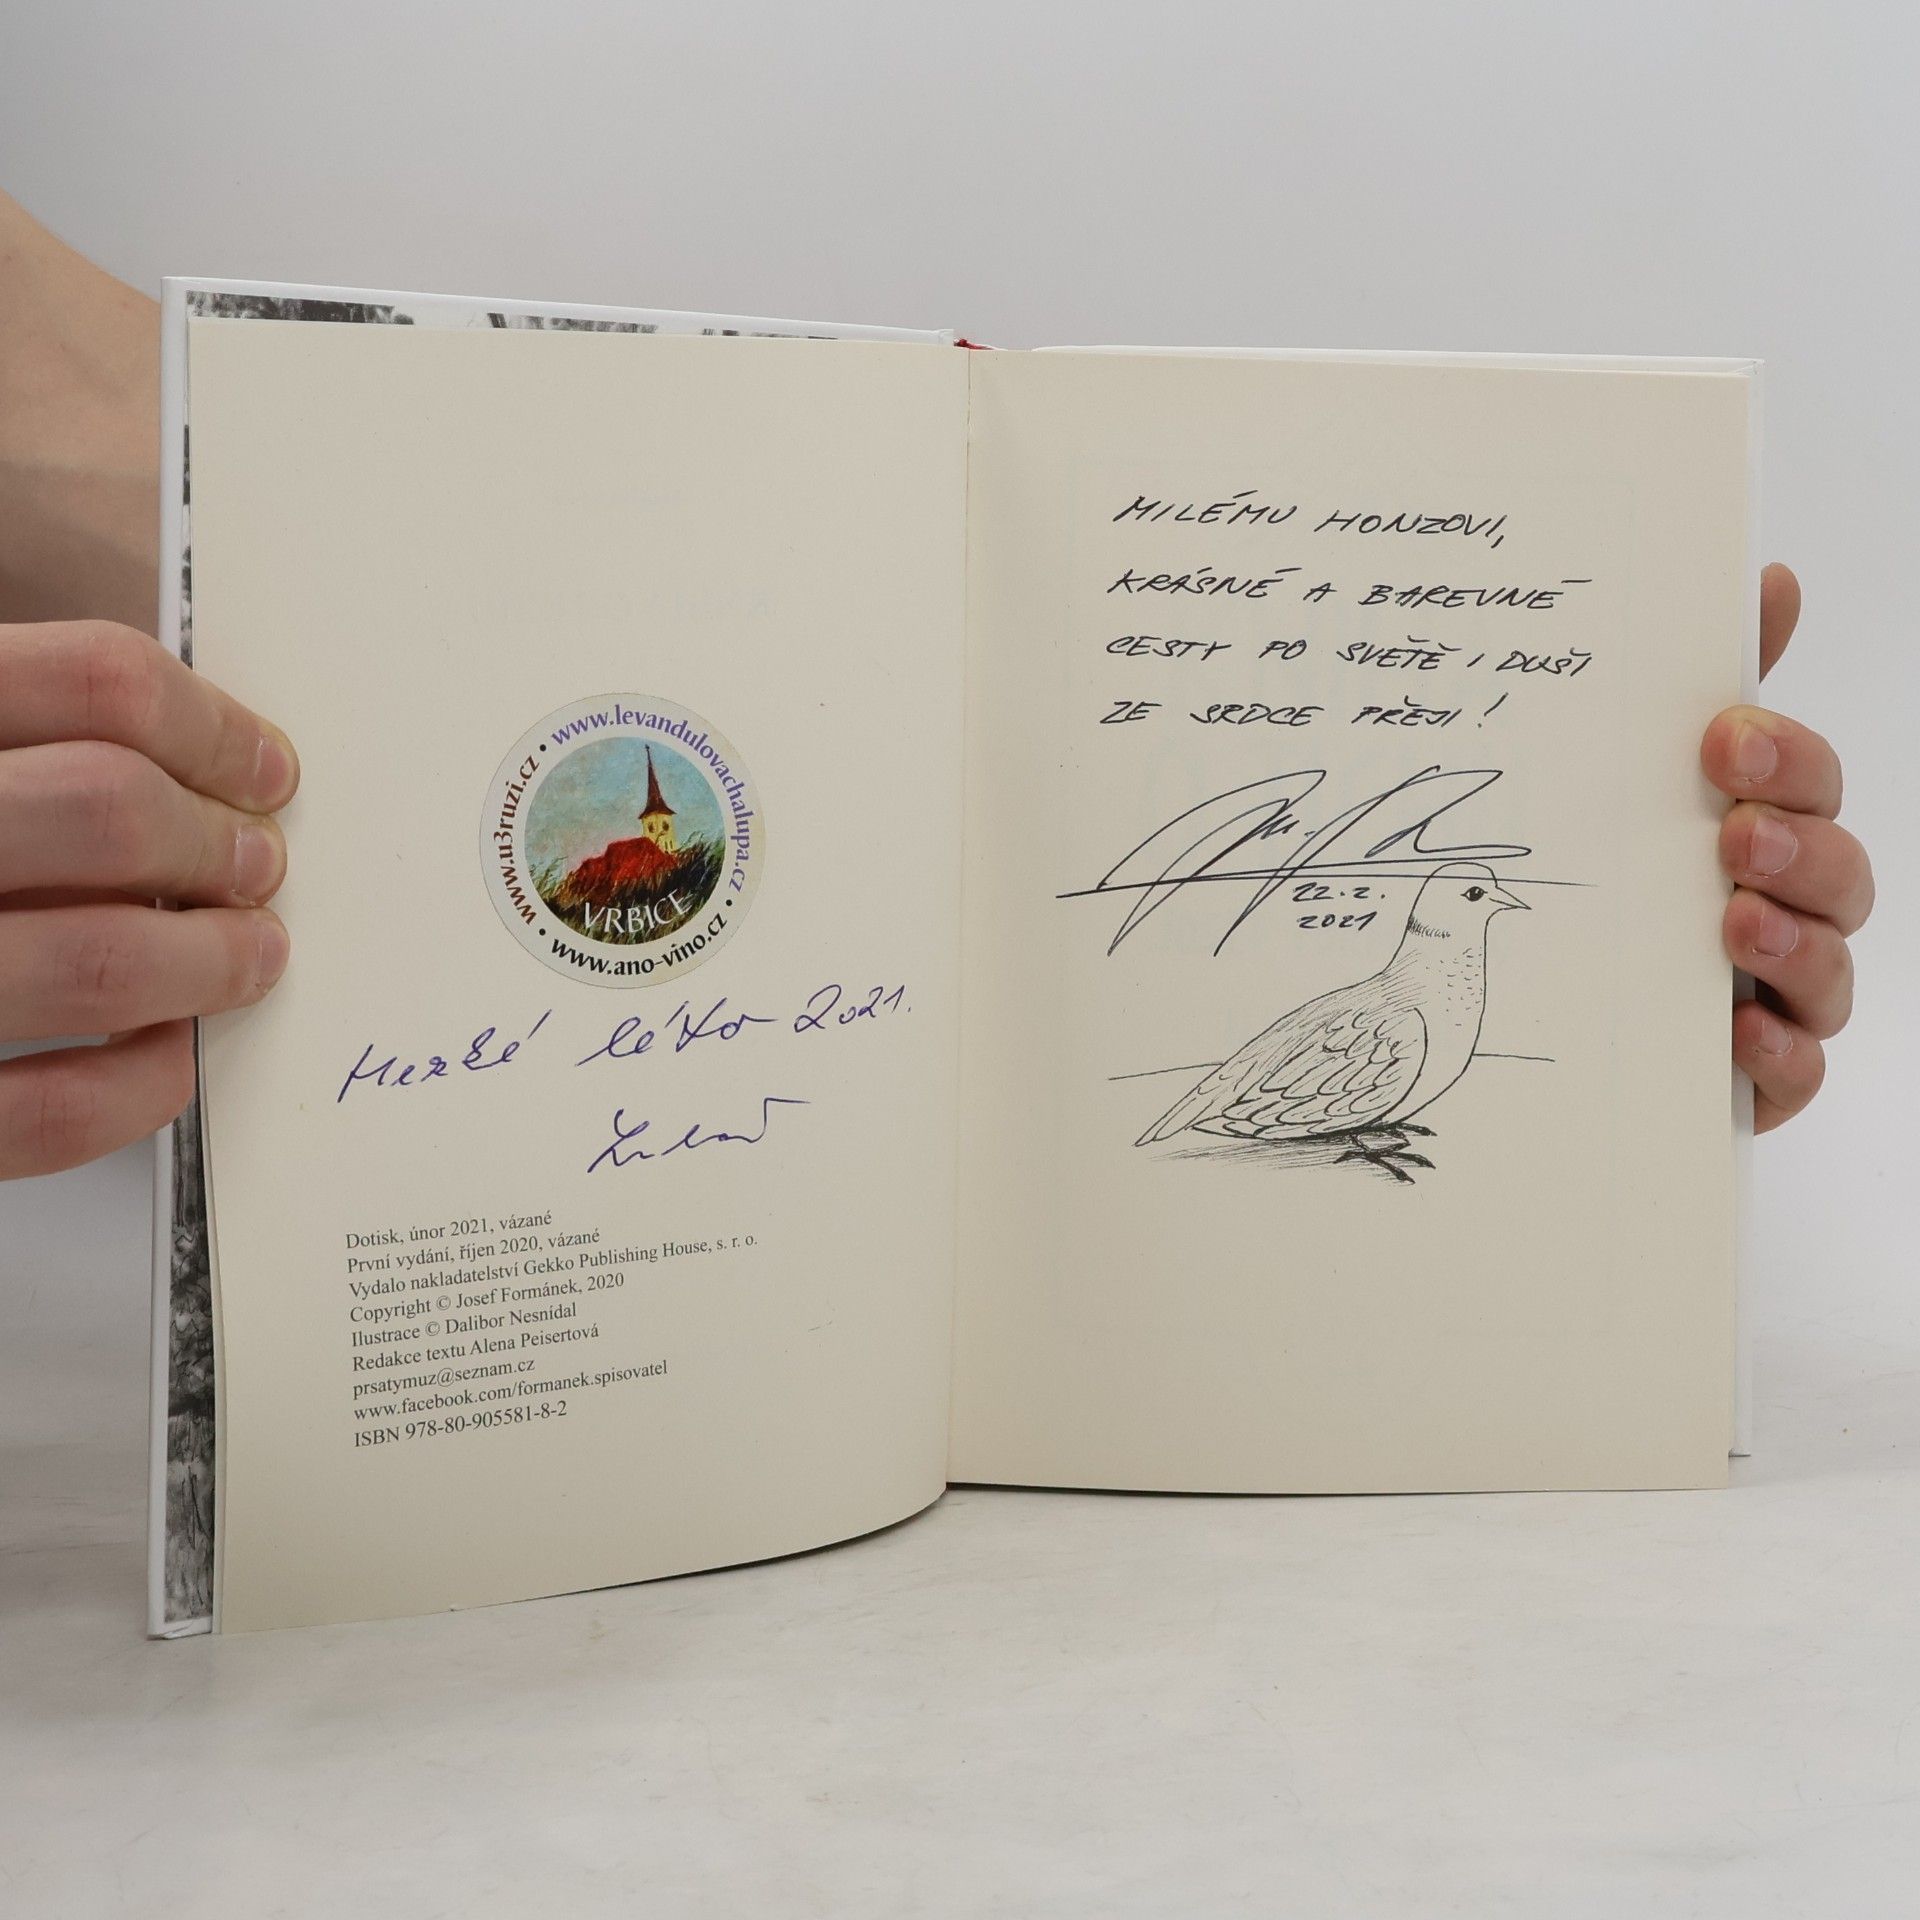 www.levandulovachalupa.cz •
www.u3ruzi.cz •
VRBICE
www.ano-vino.cz •
Hezké léto 2021.
Dotisk, únor 2021, vázané
První vydání, říjen 2020, vázané
Vydalo nakladatelství Gekko Publishing House, s. r. o.
Copyright © Josef Formánek, 2020
Ilustrace © Dalibor Nesnídal
Redakce textu Alena Peisertová
prsatymuz@seznam.cz
www.facebook.com/formanek.spisovatel
ISBN 978-80-905581-8-2
MILÉMU HONZOVI,
KRÁSNÉ A BAREVNÉ
CESTY PO SVĚTĚ I DUŠI
ZE SRDCE PŘEJI!
22.2.
2021